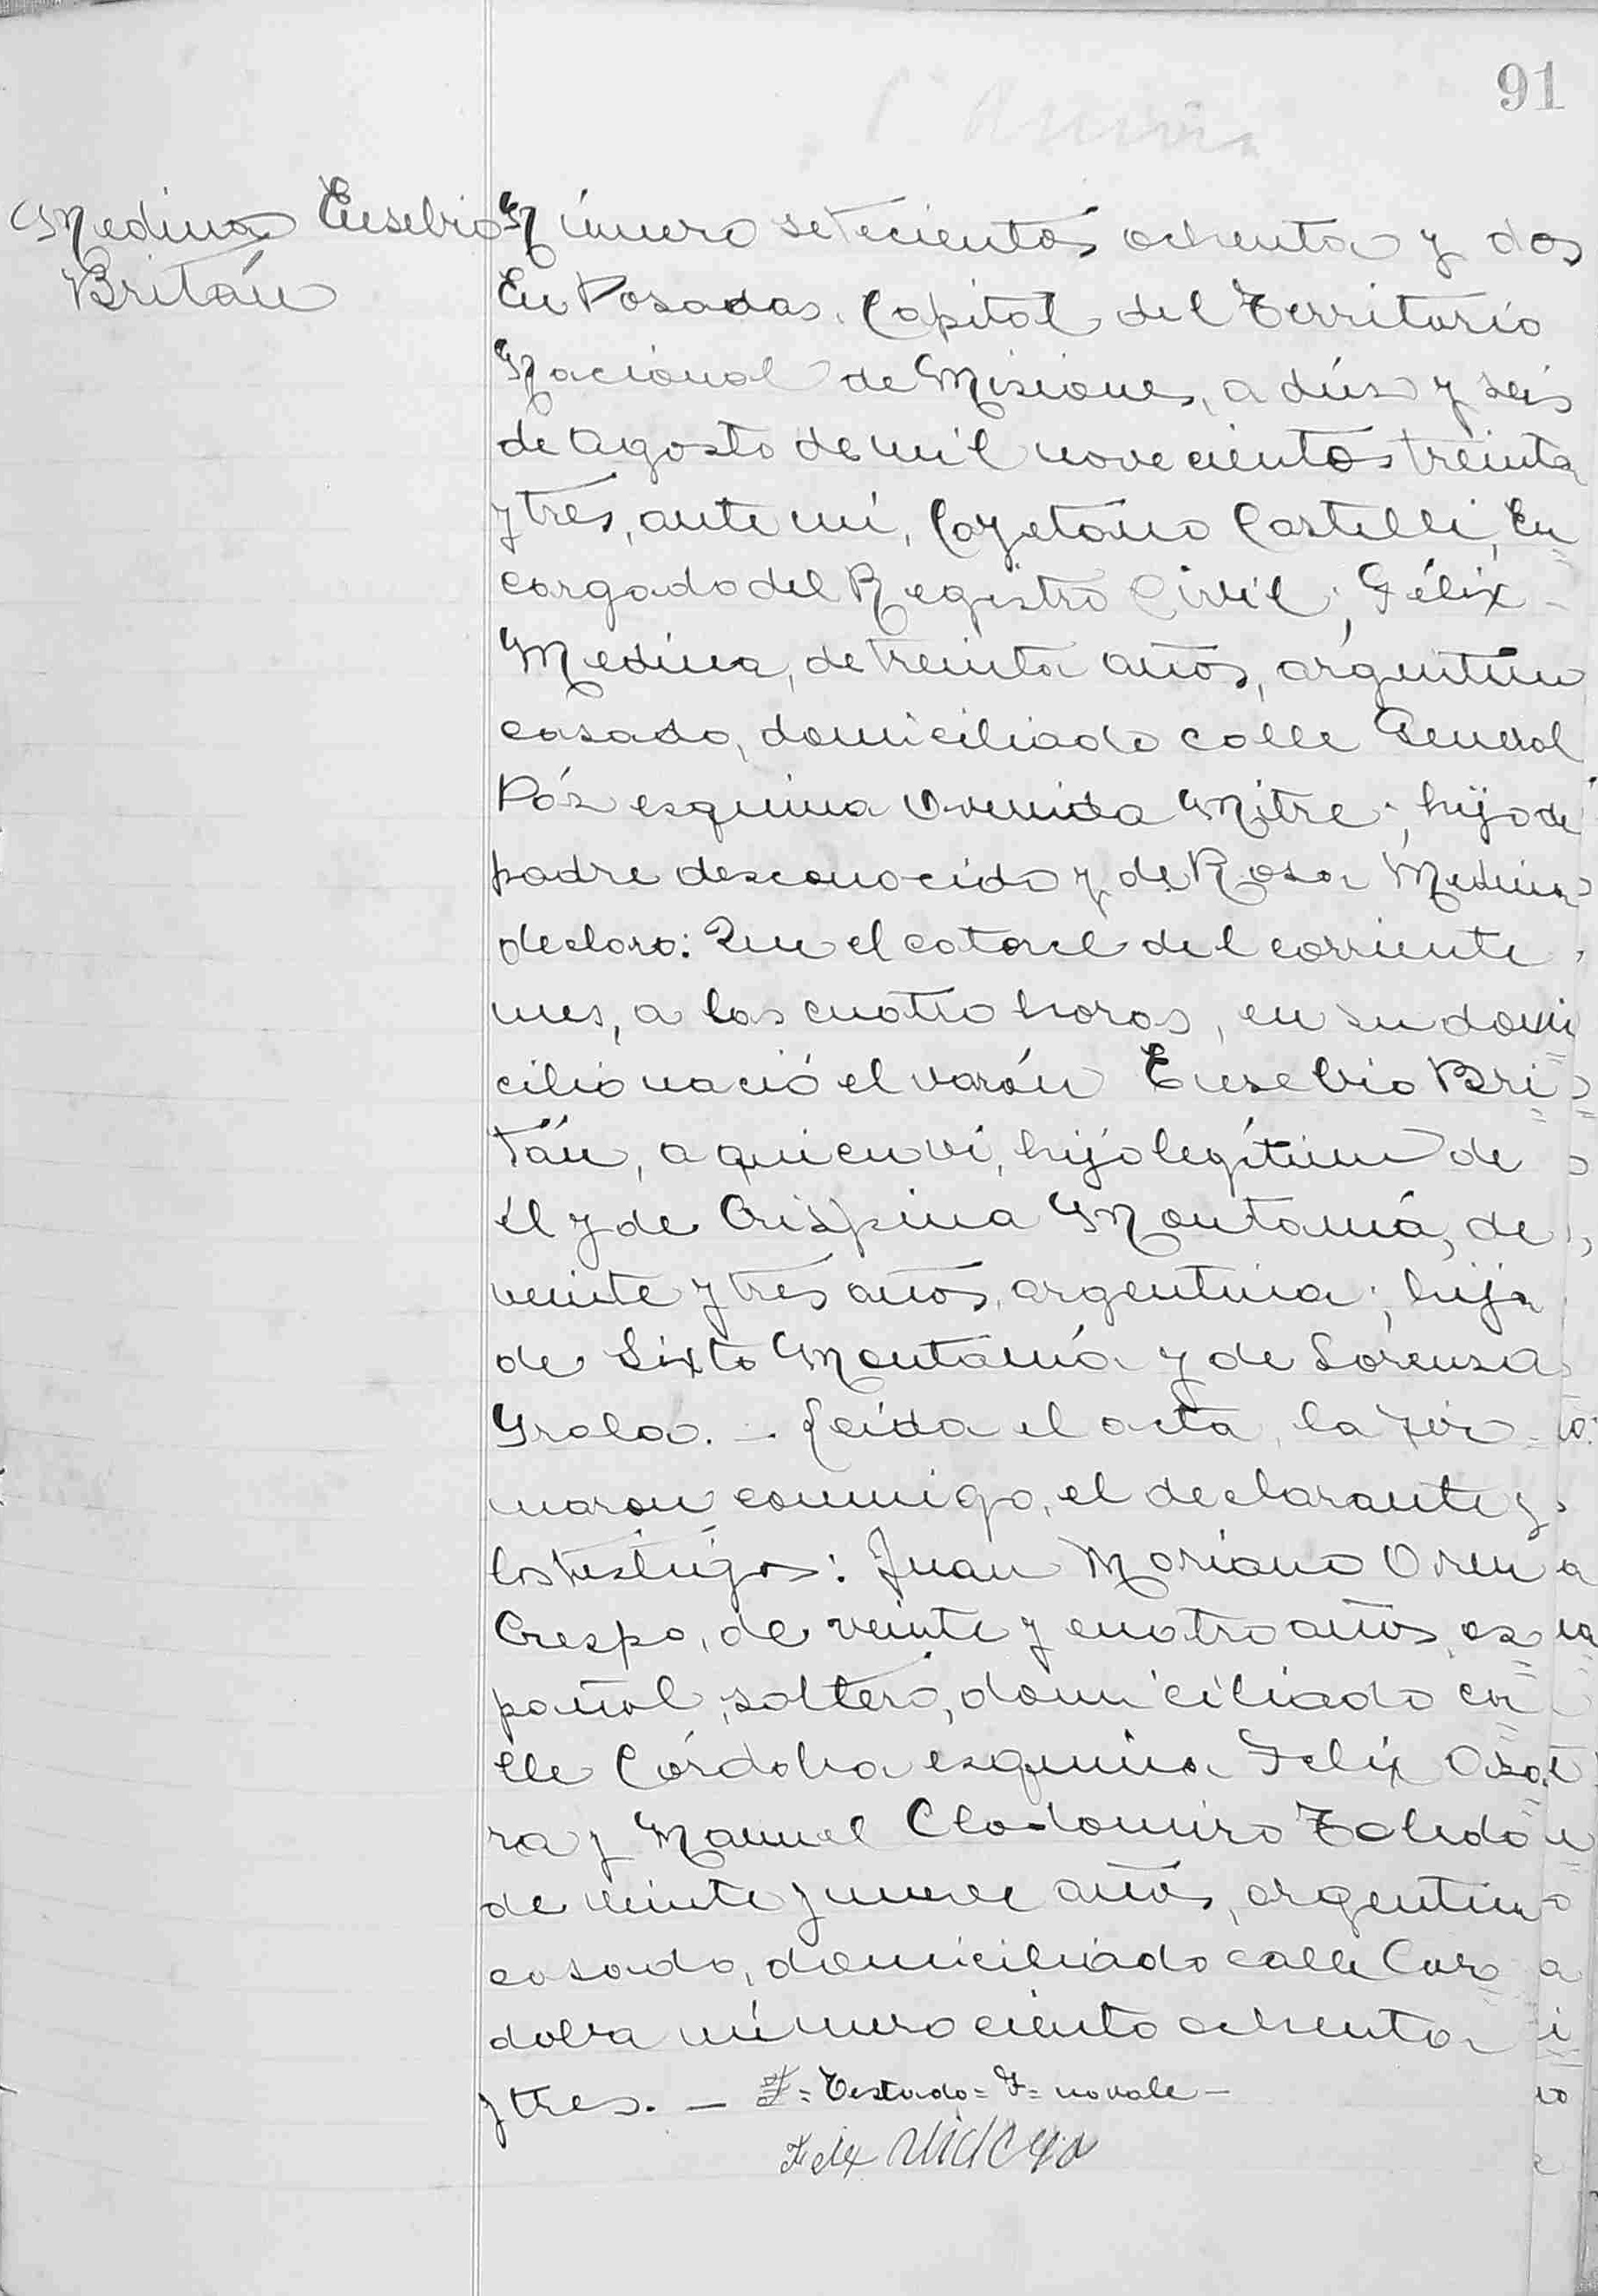 91
Medina Eusebio
Britán
Número setecientos ochenta y dos
En Posadas, Capital del Territorio
Nacional de Misiones, a diez y seis
de Agosto de mil novecientos treinta
y tres, ante mí, Cayetano Castelli, En=
cargado del Registro Civil; Félix
Medina, de treinta años, argentino
casado, domiciliado calle General
Páz esquina Avenida Mitre; hijo de
padre desconocido y de Rosa Medina
declaro: Que el catorce del corriente
mes, a las cuatro horas, en su domi=
cilio nació el varón Eusebio Bri=
tán, a quien ví, hijo legítimo de
él y de Crispina Montaná, de
veinte y tres años, argentina; hija
de Sixto Montaná y de Lorensa
Grala. — Leída el acta, la fir=
maron conmigo, el declarante y
los testigos: Juan Mariano
Crespo, de veinte y cuatro años, es=
pañol, soltero, domiciliado ca=
lle Córdoba esquina Felix Aza=
ra y Manuel Clodomiro Toledo
de veinte y nueve años, argentino
casado, domiciliado calle Cor=
doba número ciento ochenta
y tres. — F = Testado = F = no vale —
Felix Medina